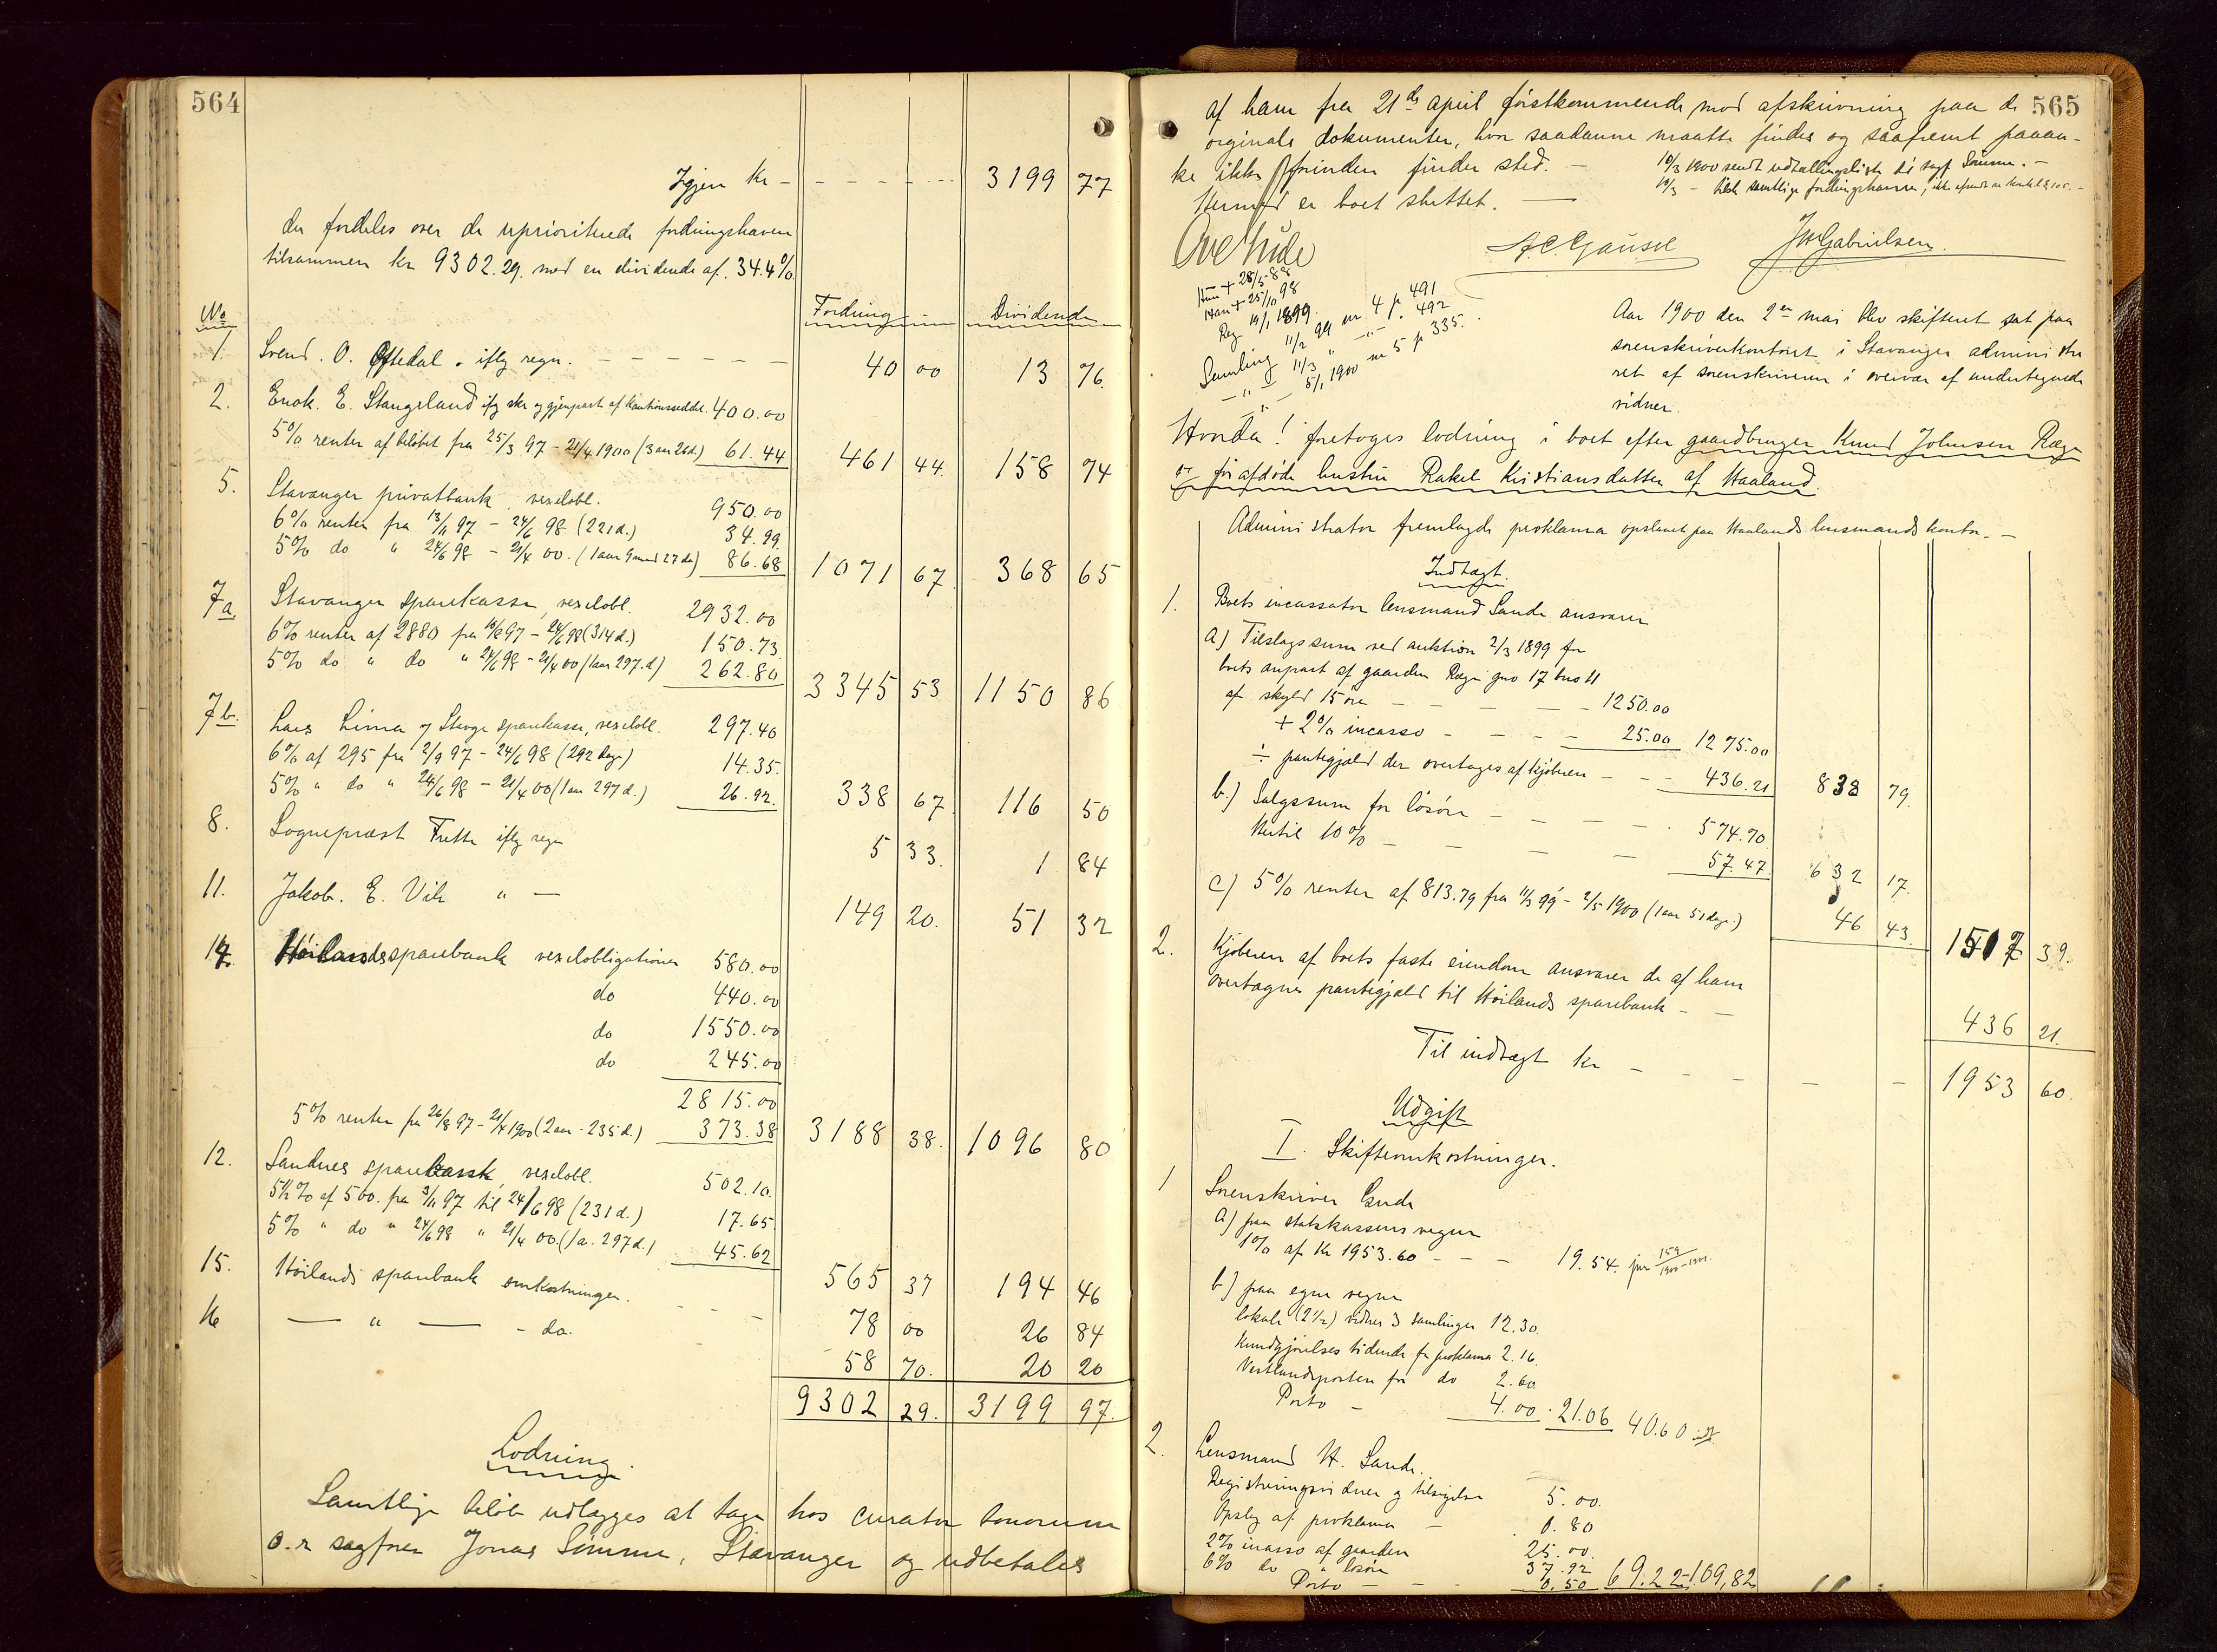 564
Igjen kr - - - - - - 3199 77
der fordeles over de uprioriterede fordringshavere
tilsammen kr 9302.29. med en dividende af. 34.4%
No Fordring Dividende
1. Svend. O. Oftedal. iflg regn. - - - - - - 40 00 13 76.
2. Enok. E. Stangeland iflg skr og gjenpart af kautionsseddel. 400.00
5% renter af beløbet fra 25/3 97 - 21/4 1900 (3 aar 26 d.) 61.44 461 44. 158 74
5. Stavanger privatbank, vexelobl. 950.00
6% renter fra 13/11 97 - 24/6 98 (221 d.) 34.99.
5% do " 24/6 98 - 21/4 00. (1 aar 9 mnd 27 da) 86.68 1071 67. 368 65
7a. Stavanger sparekasse, vexelobl. 2932.00
6% renter af 2880 fra 10/8 97 - 24/6 98 (314 d.) 150.73.
5% do " do " 24/6 98 - 21/4 00 (1 aar 297. d.) 262.80 3345 53 1150 86
7b. Lars Lima og Stavgr sparekasse, vexelobl. 297.40
6% af 295 fra 2/9 97 - 24/6 98 (292 dage) 14.35.
5% " do " 24/6 98 - 21/4 00 (1 aar 297 d.) 26.92. 338 67. 116 50
8. Sogneprest Tvette iflg regn 5 33. 1 84
11. Jakob. E. Vik " - 149 20. 51 32
14. Høilands sparebank vexelobligationer 580.00
do 440.00
do 1550.00
do 245.00
2815.00
5% renter fra 26/8 97 - 21/4 1900 (2 aar 235 d.) 373.38 3188 38. 1096 80
12. Sandnes sparebank, vexelobl. 502.10.
5½% af 500. fra 3/11 97 til 24/6 98 (231 d.) 17.65
5% " do " 24/6 98 " 21/4 00. (1 a. 297 d.) 45.62 565 37 194 46
15. Høilands sparebank omkostninger. - - - 78 00 26 84
16 — " — - do. 58 70. 20 20
9302 29. 3199 97.
Lodning.
Samtlige beløb udlægges at tage hos curator bonorum
o.r sagfører Jonas Sømme, Stavanger og udbetales
565
af ham fra 21de april førstkommende mod afskrivning paa de
originale dokumenter, hvor saadanne maatte findes og saafremt paaan-
ke ikke forinden finder sted. -
Hermed er boet sluttet. —
10/3 1900 sendt udtællingsliste til sagf Sømme. -
Ove Eide A.C. Gausel J W Gabrielsen.
Hun + 28/5 88
Han + 25/11 98
Reg 14/1 1899.
Samling 11/2 99 nr 4 p. 491
- " - 11/3 " - " - 492
- " - 5/1 1900 nr 5 p 335.
Aar 1900 den 2den mai blev skifteret sat paa
sorenskriverkontoret i Stavanger administre
ret af sorenskriveren i overvær af undertegnede
vidner.
Hvorda! foretoges lodning i boet efter gaardbruger Knud Johnsen Ræge
og før afdøde hustru Rakel Kristiansdatter af Haaland.
Administrator fremlagde proklama opslaaet paa Haalands lensmandskontor. -
Indtægt.
1. Boets incassator lensmand Sande ansvarer
a) Tilslagssum ved auktion 2/3 1899 for
boets anpart af gaarden Ræge gno 17 bno 11
af skyld 15 øre - - - - - 1250.00
+ 2% incasso - - - - 25.00 1275.00
÷ pantegjæld der overtages af kjøberen - - - 436.21 838 79.
b.) Salgssum for løsøre - - - - 574.70
Hertil 10% - - - - 57.47. 632 17.
c) 5% renter af 813.79 fra 11/3 99 - 2/5 1900 (1 aar 51 dage.) 46 43. 1517 39.
2. Kjøberen af boets faste eiendom ansvarer de af ham
overtagne pantegjæld til Høilands sparebank - - 436 21.
Til indtægt kr - - - - - 1953 60.
Udgift
I. Skifteomkostninger.
1 Sorenskriver Eide
a) paa statskassens vegne
1% af kr 1953.60 - - - 19.54. jnr 159/1900-1901.
b) paa egne vegne
lokale (2½) vidner 3 samlinger 12.30.
Kundgjørelses tidende for proklama 2.16.
Vestlandsposten for do 2.60
Porto - 4.00. 21.06 40.60
2. Lensmand H. Sande.
Registreringsvidner og tilsigelse 5.00.
Opslag af proklama - 0.80
2% incasso af gaarden 25.00.
6% do " løsøre 37.92
Porto - - - 0.50 69.22 109,82